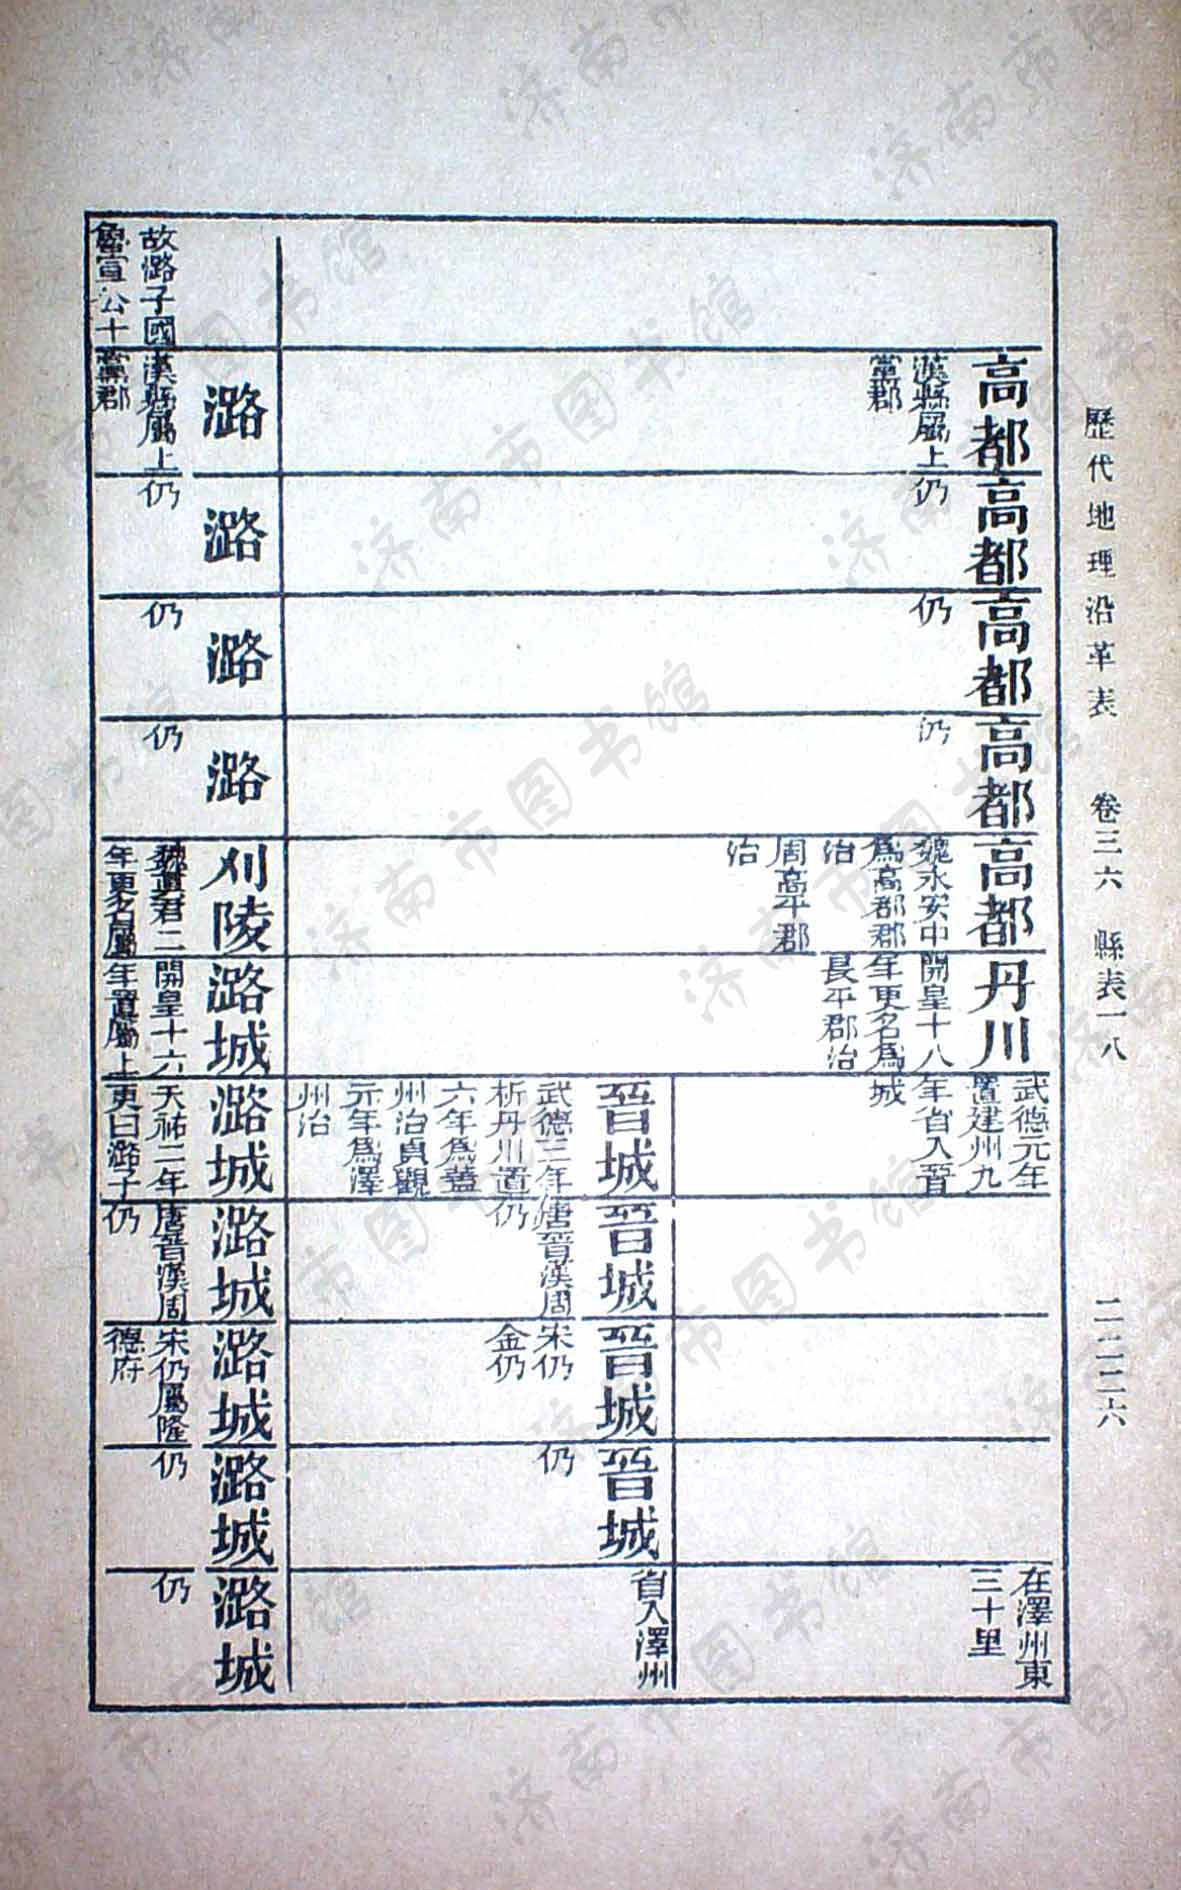 歷代地理沿革表　卷三六　縣表一八　二二二六
高都
漢縣屬上
黨郡
高都
仍
高都
仍
高都
仍
高都
魏永安中
爲高都郡
治
周高平郡
治
丹川
開皇十八
年更名爲
長平郡治
武德元年
置建州九
年省入晉
城
在澤州東
三十里
晉城
武德三年
析丹川置
六年爲蓋
州治貞觀
元年爲澤
州治
晉城
唐晉漢周
仍
晉城
宋仍
金仍
晉城
仍
省入澤州
故潞子國
魯宣公十
潞
漢縣屬上
黨郡
潞
仍
潞
仍
潞
仍
刈陵
魏真君二
年更名屬
潞城
開皇十六
年置屬上
潞城
天祐二年
更曰潞子
潞城
唐晉漢周
仍
潞城
宋仍屬隆
德府
潞城
仍
潞城
仍
济南市图书馆